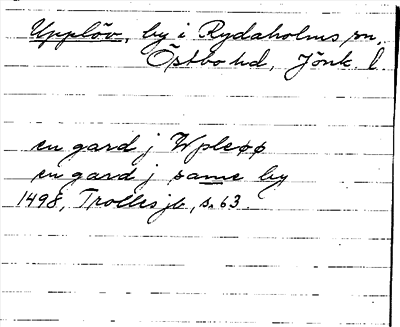 Upplöv, by i Rydaholms sn.
Östbo hd, Jönk. l
en gard j Wpleøø
en gard j same by
1498, Trolles jb, s. 63.